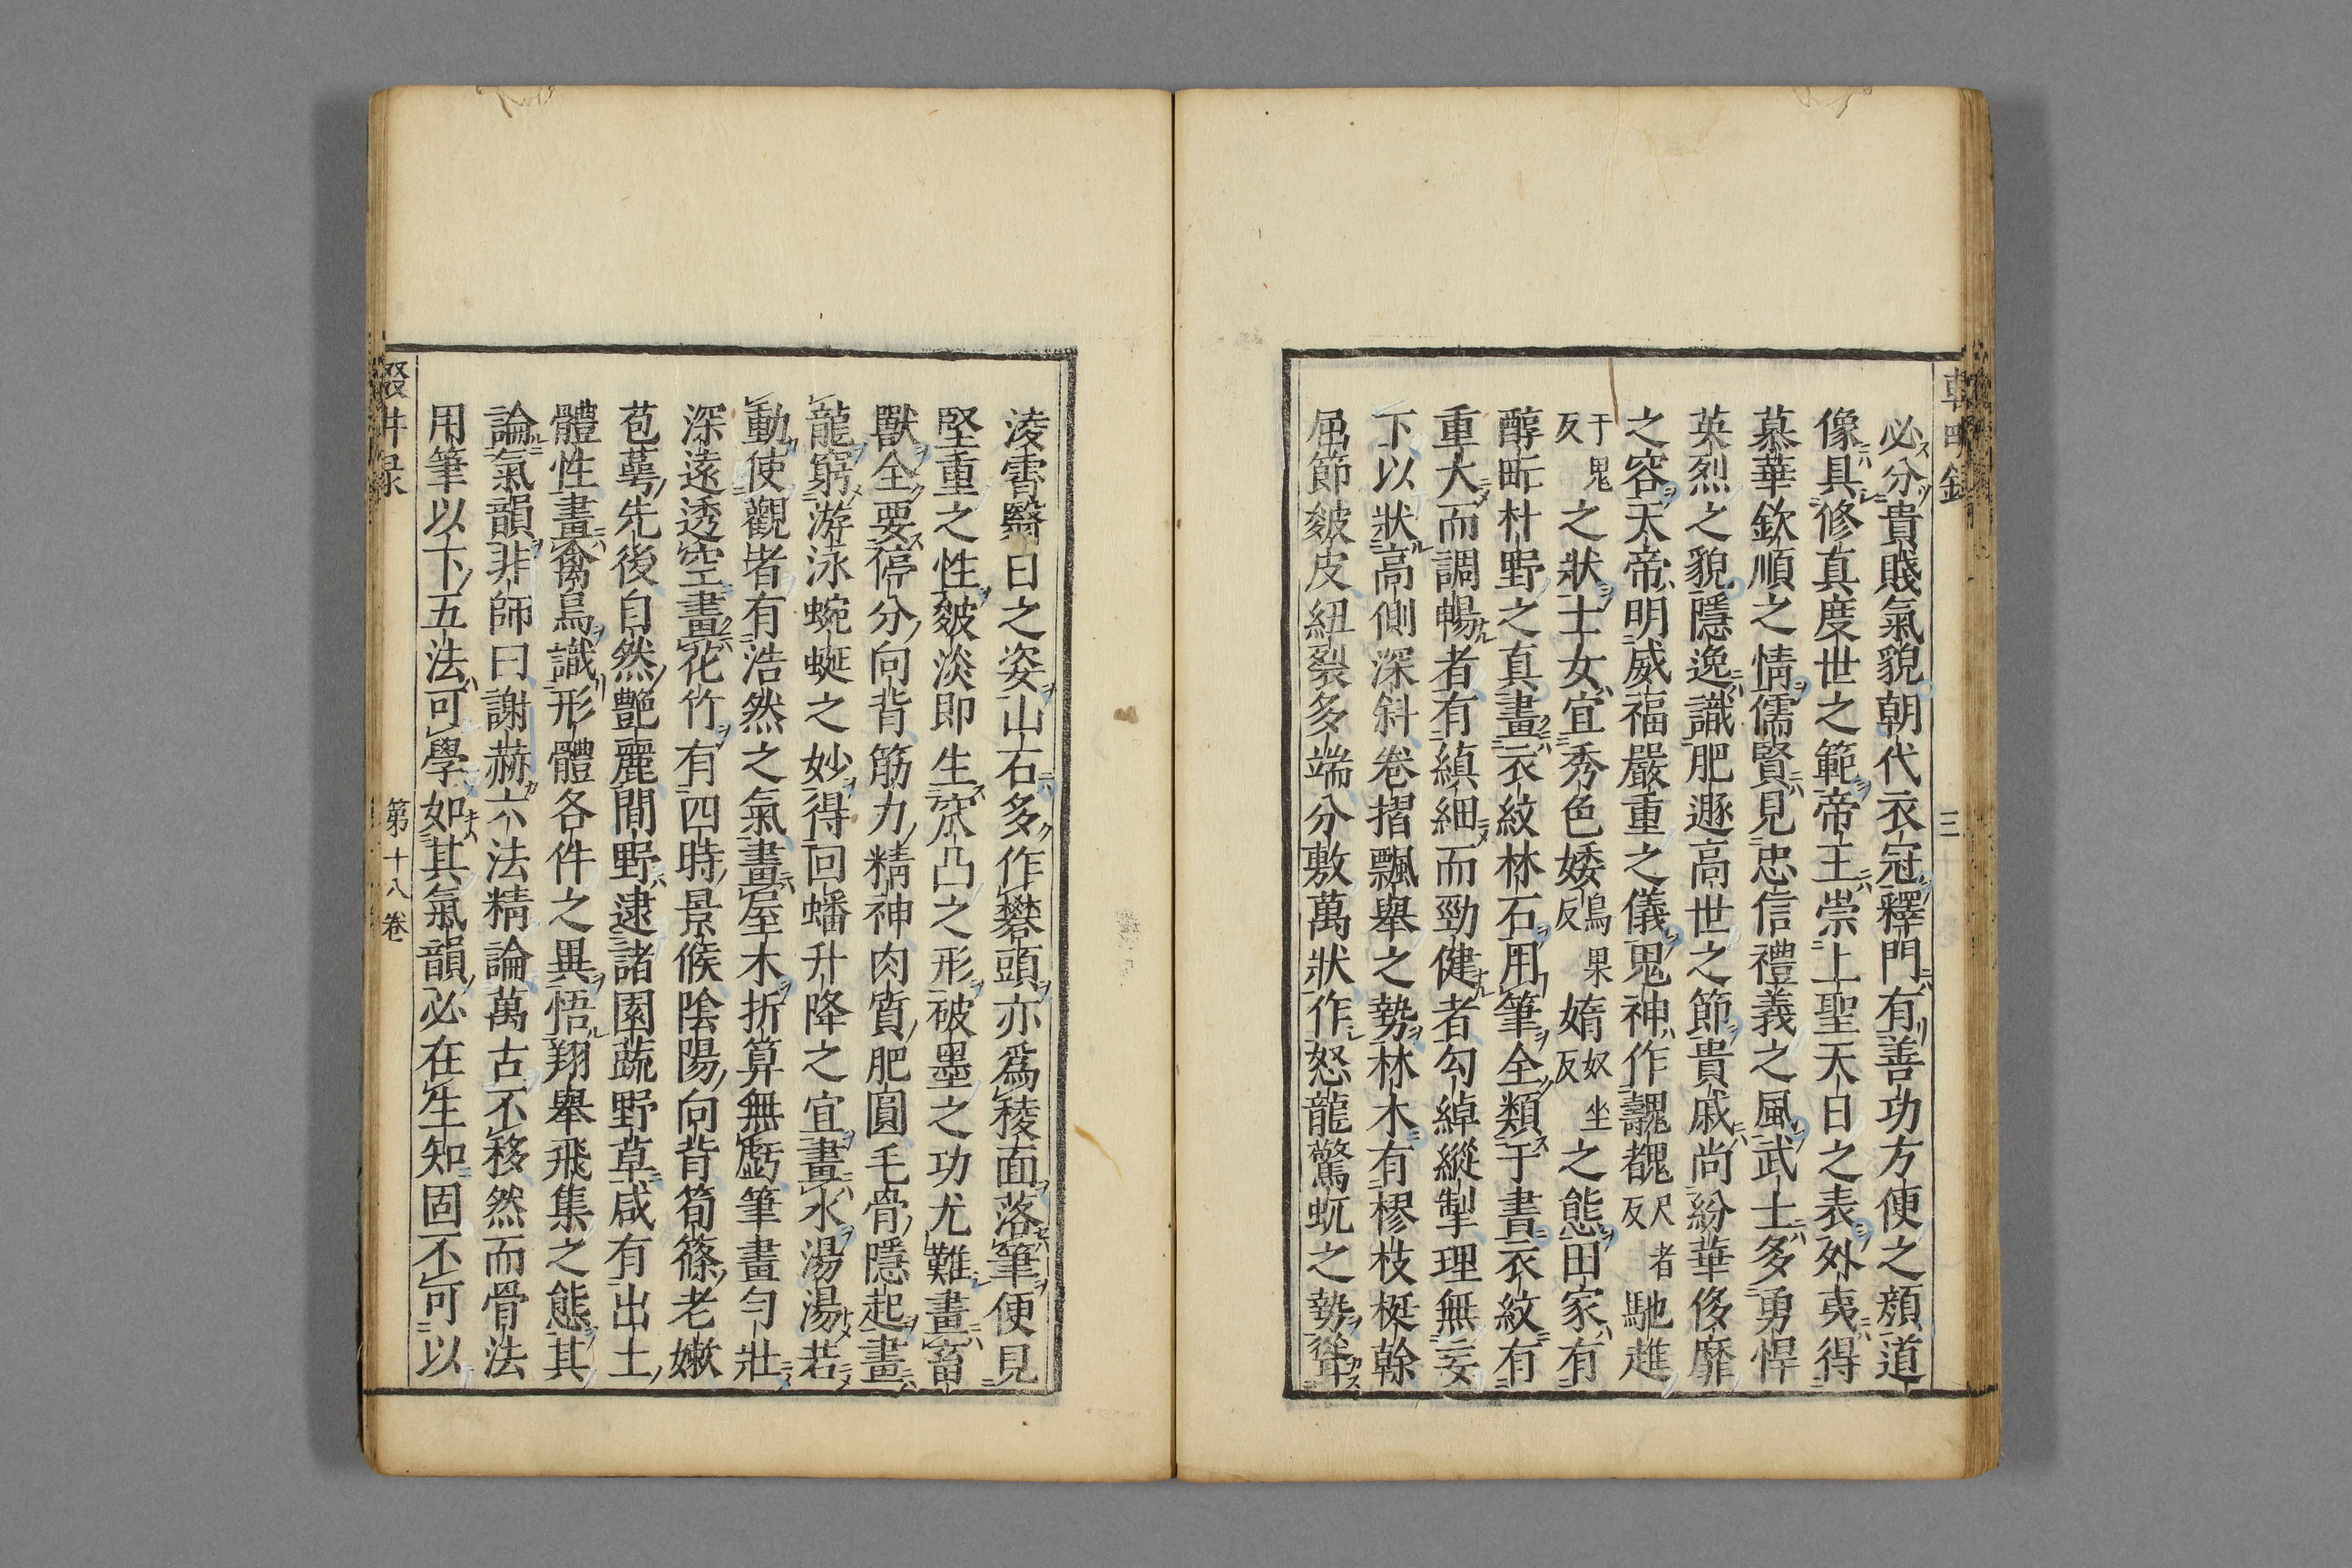 必分貴賤氣貌朝代衣冠釋門有善功方便之顔道
像具修真度世之範帝王崇上聖天日之表外夷得
慕華欽順之情儒賢見忠信禮義之風武士多勇悍
英烈之貌隱逸識肥遯高世之節貴戚尚紛華侈靡
之容天帝明威福嚴重之儀鬼神作醜䰩尺者反馳趡
于鬼反之狀士女宜秀色婑烏果反媠奴坐反之態田家有
醇甿朴野之真畫衣紋林石用筆全類于書衣紋有
重大而調暢者有縝細而勁健者勾綽縱掣理無妄
下以狀高側深斜卷摺飄舉之勢林木有樛枝梃幹
屈節皴皮紐裂多端分敷萬狀作怒龍驚虬之勢聳
淩雲翳日之姿山石多作礬頭亦爲稜面落筆便見
堅重之性皴淡即生窊凸之形破墨之功尤難畫畜
獸全要停分向背筋力精神肉質肥圓毛骨隱起畫
龍窮游泳蜿蜒之妙得回蟠升降之宜畫水湯湯若
動使觀者有浩然之氣畫屋木折算無虧筆畫勻壯
深遠透空畫花竹有四時景候陰陽向背筍篠老嫩
苞萼先後自然艷麗間野逮諸園蔬野草咸有出土
體性畫禽鳥識形體各件之異悟翔舉飛集之態其
論氣韻非師曰謝赫六法精論萬古不移然而骨法
用筆以下五法可學如其氣韻必在生知固不可以
輟畊錄
三
輟畊录
第十八卷